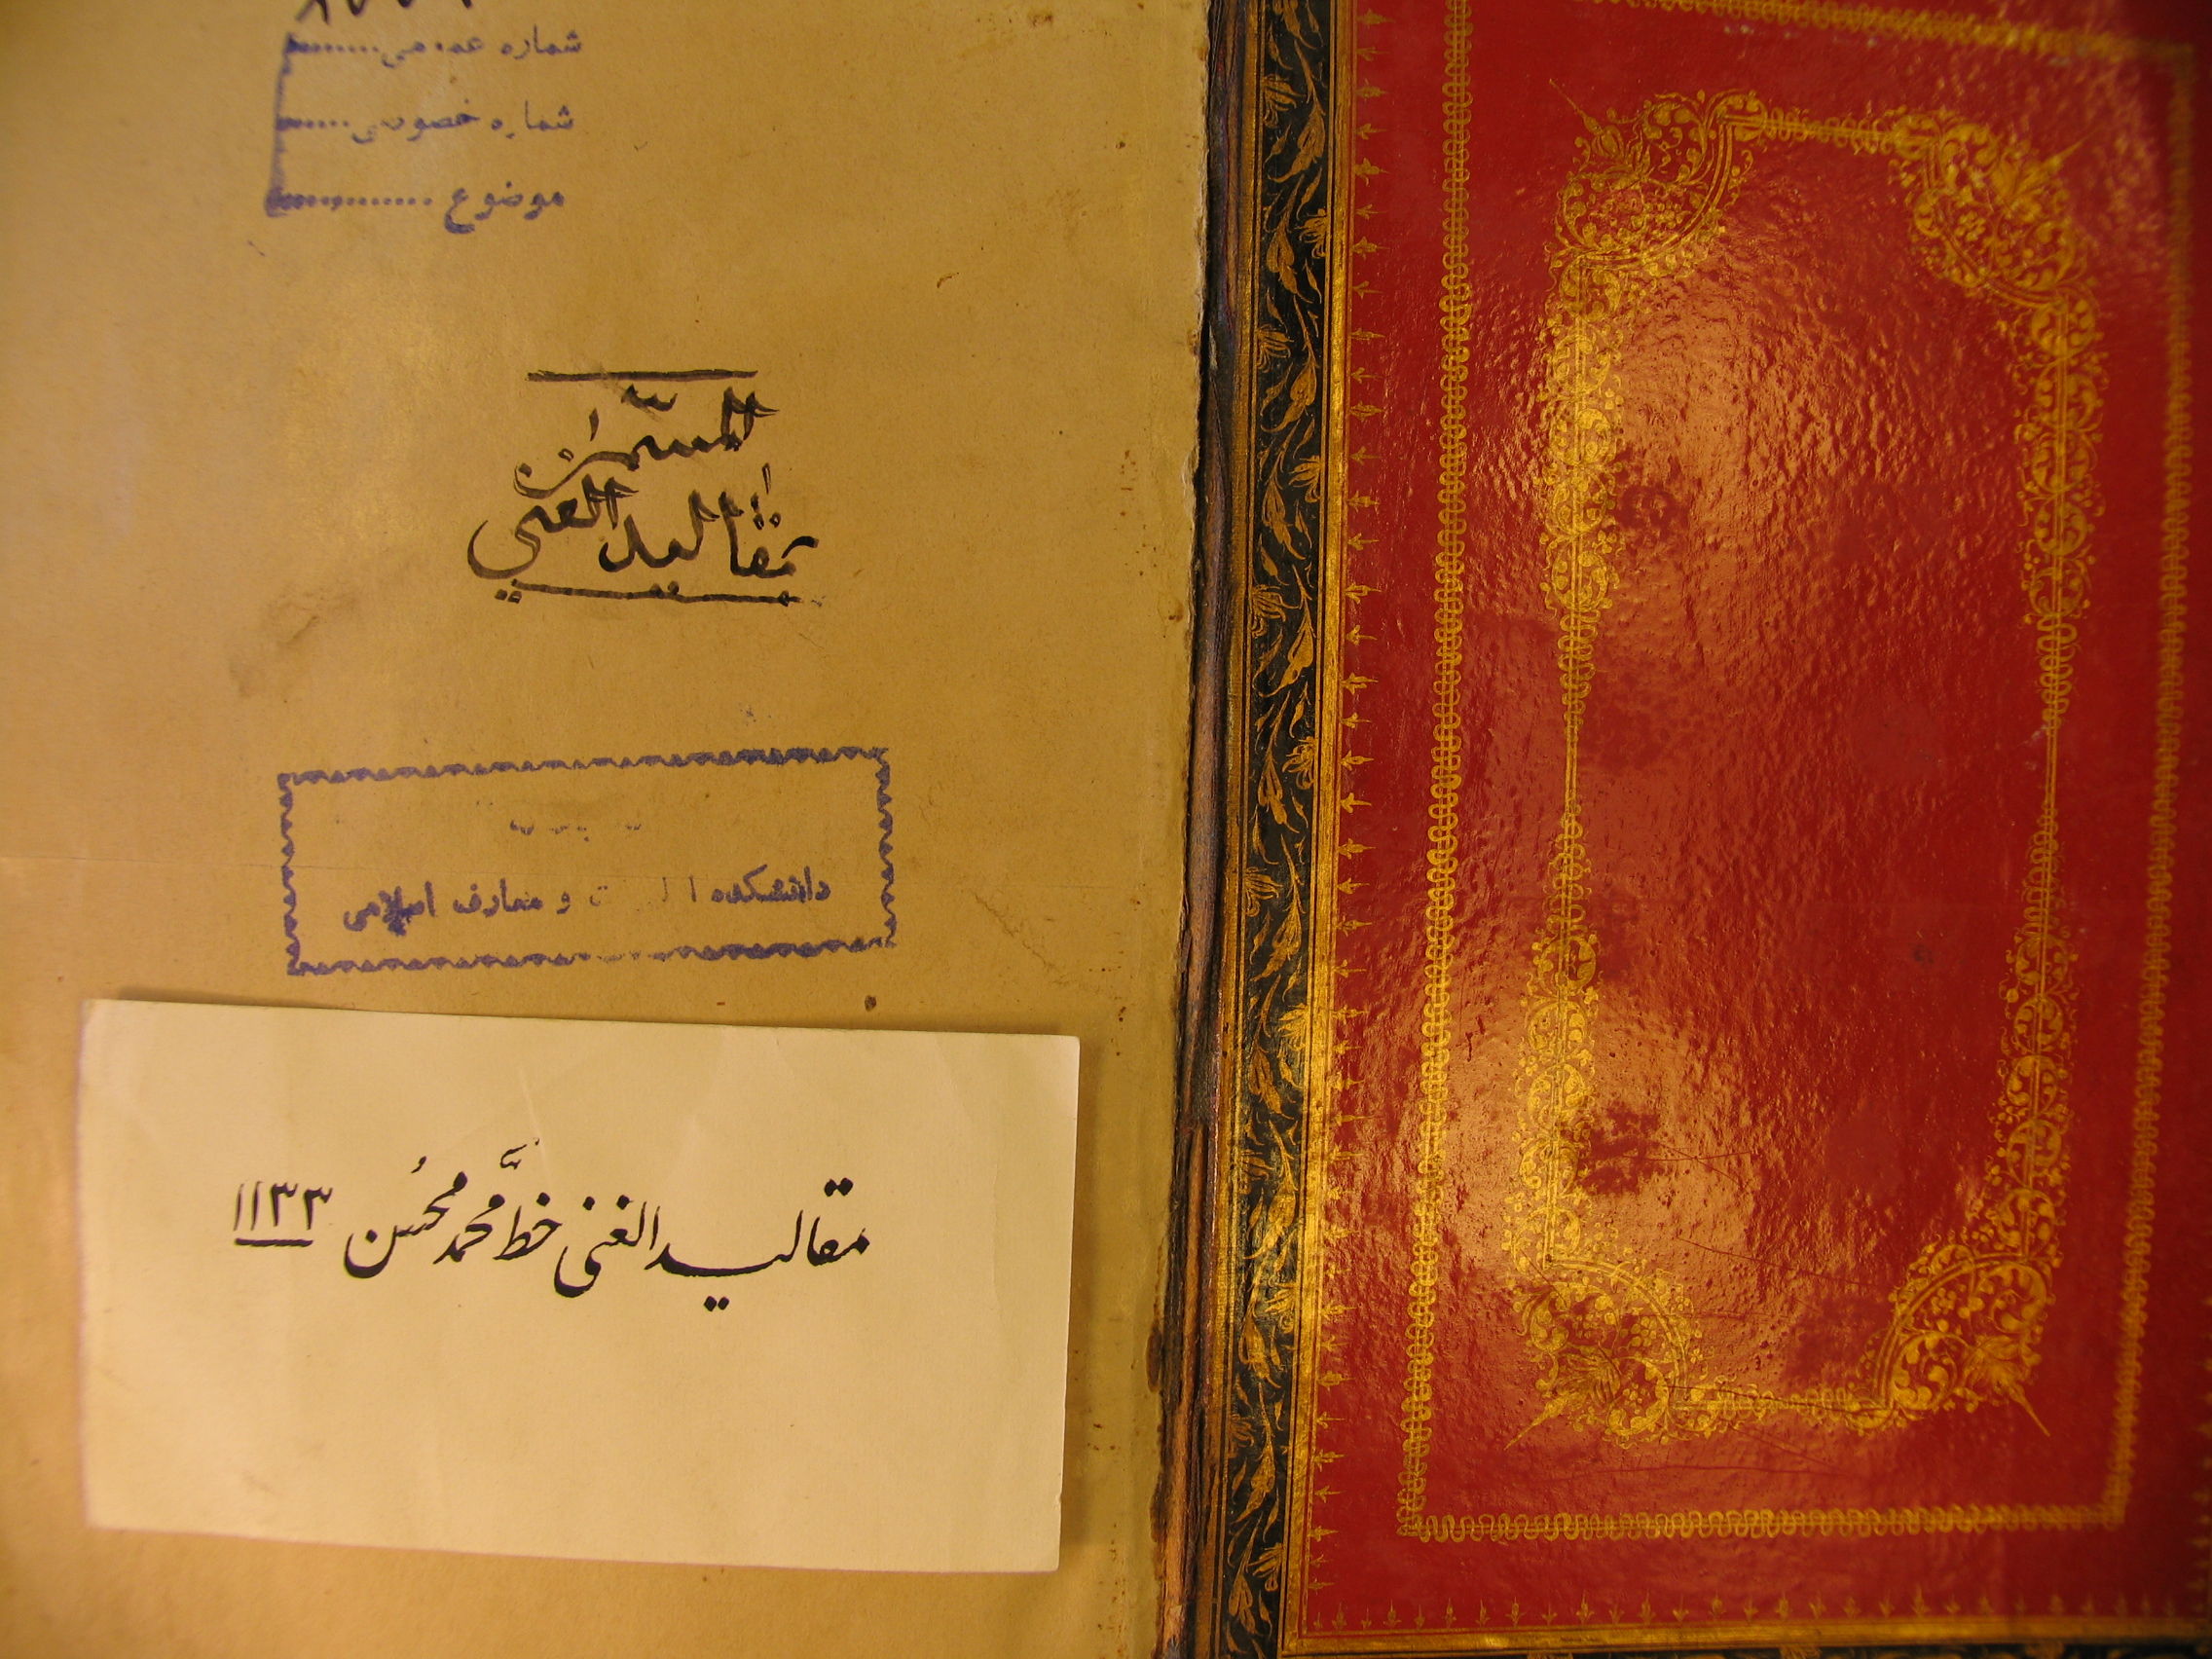 شماره عمومی..........
شماره خصوصی.....
موضوع .............
بمقالید الغنی
دانشکده ا و معارف اسلامی
مقالید الغنی خطّ محمد محسن ۱۱۳۳